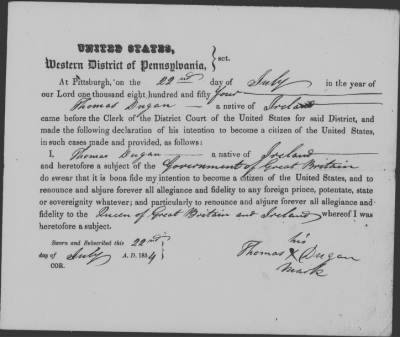 UNITED STATES,
Western District of Pennsylvania, } sct.
At Pittsburgh, on the 22nd day of July in the year of
our Lord one thousand eight hundred and fifty four
Thomas Dugan — a native of Ireland
came before the Clerk of the District Court of the United States for said District, and
made the following declaration of his intention to become a citizen of the United States,
in such cases made and provided, as follows:
I, Thomas Dugan — a native of Ireland
and heretofore a subject of the Government of Great Britain
do swear that it is boona fide my intention to become a citizen of the United States, and to
renounce and abjure forever all allegiance and fidelity to any foreign prince, potentate, state
or sovereignty whatever; and particularly to renounce and abjure forever all allegiance and
fidelity to the Queen of Great Britain and Ireland whereof I was
heretofore a subject.
Sworn and Subscribed this 22nd
day of July A. D. 1854
COR.
his
Thomas X Dugan
mark